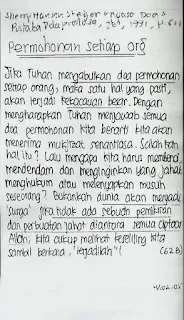 Permohonan Setiap org
Jika Tuhan mengabulkan doa permohonan
setiap orang, maka satu hal yang pasti,
akan terjadi kekacauan besar. Dengan
mengharapkan Tuhan menjawab semua
doa permohonan kita berarti kita akan
menerima mukjizat senantiasa. Salah kah
hal itu? Lalu mengapa kita harus membenci,
mendendam dan menginginkan yang jahat
menghukum atau melenyapkan musuh
seseorang? Bukankah dunia akan menjadi
"surga" jika tidak ada sebuah pemikiran
dan perbuatan jahat diantara semua ciptaan
Allah, kita cukup melihat keliling kita
sambil berkata, "terjadilah"!
(62B)